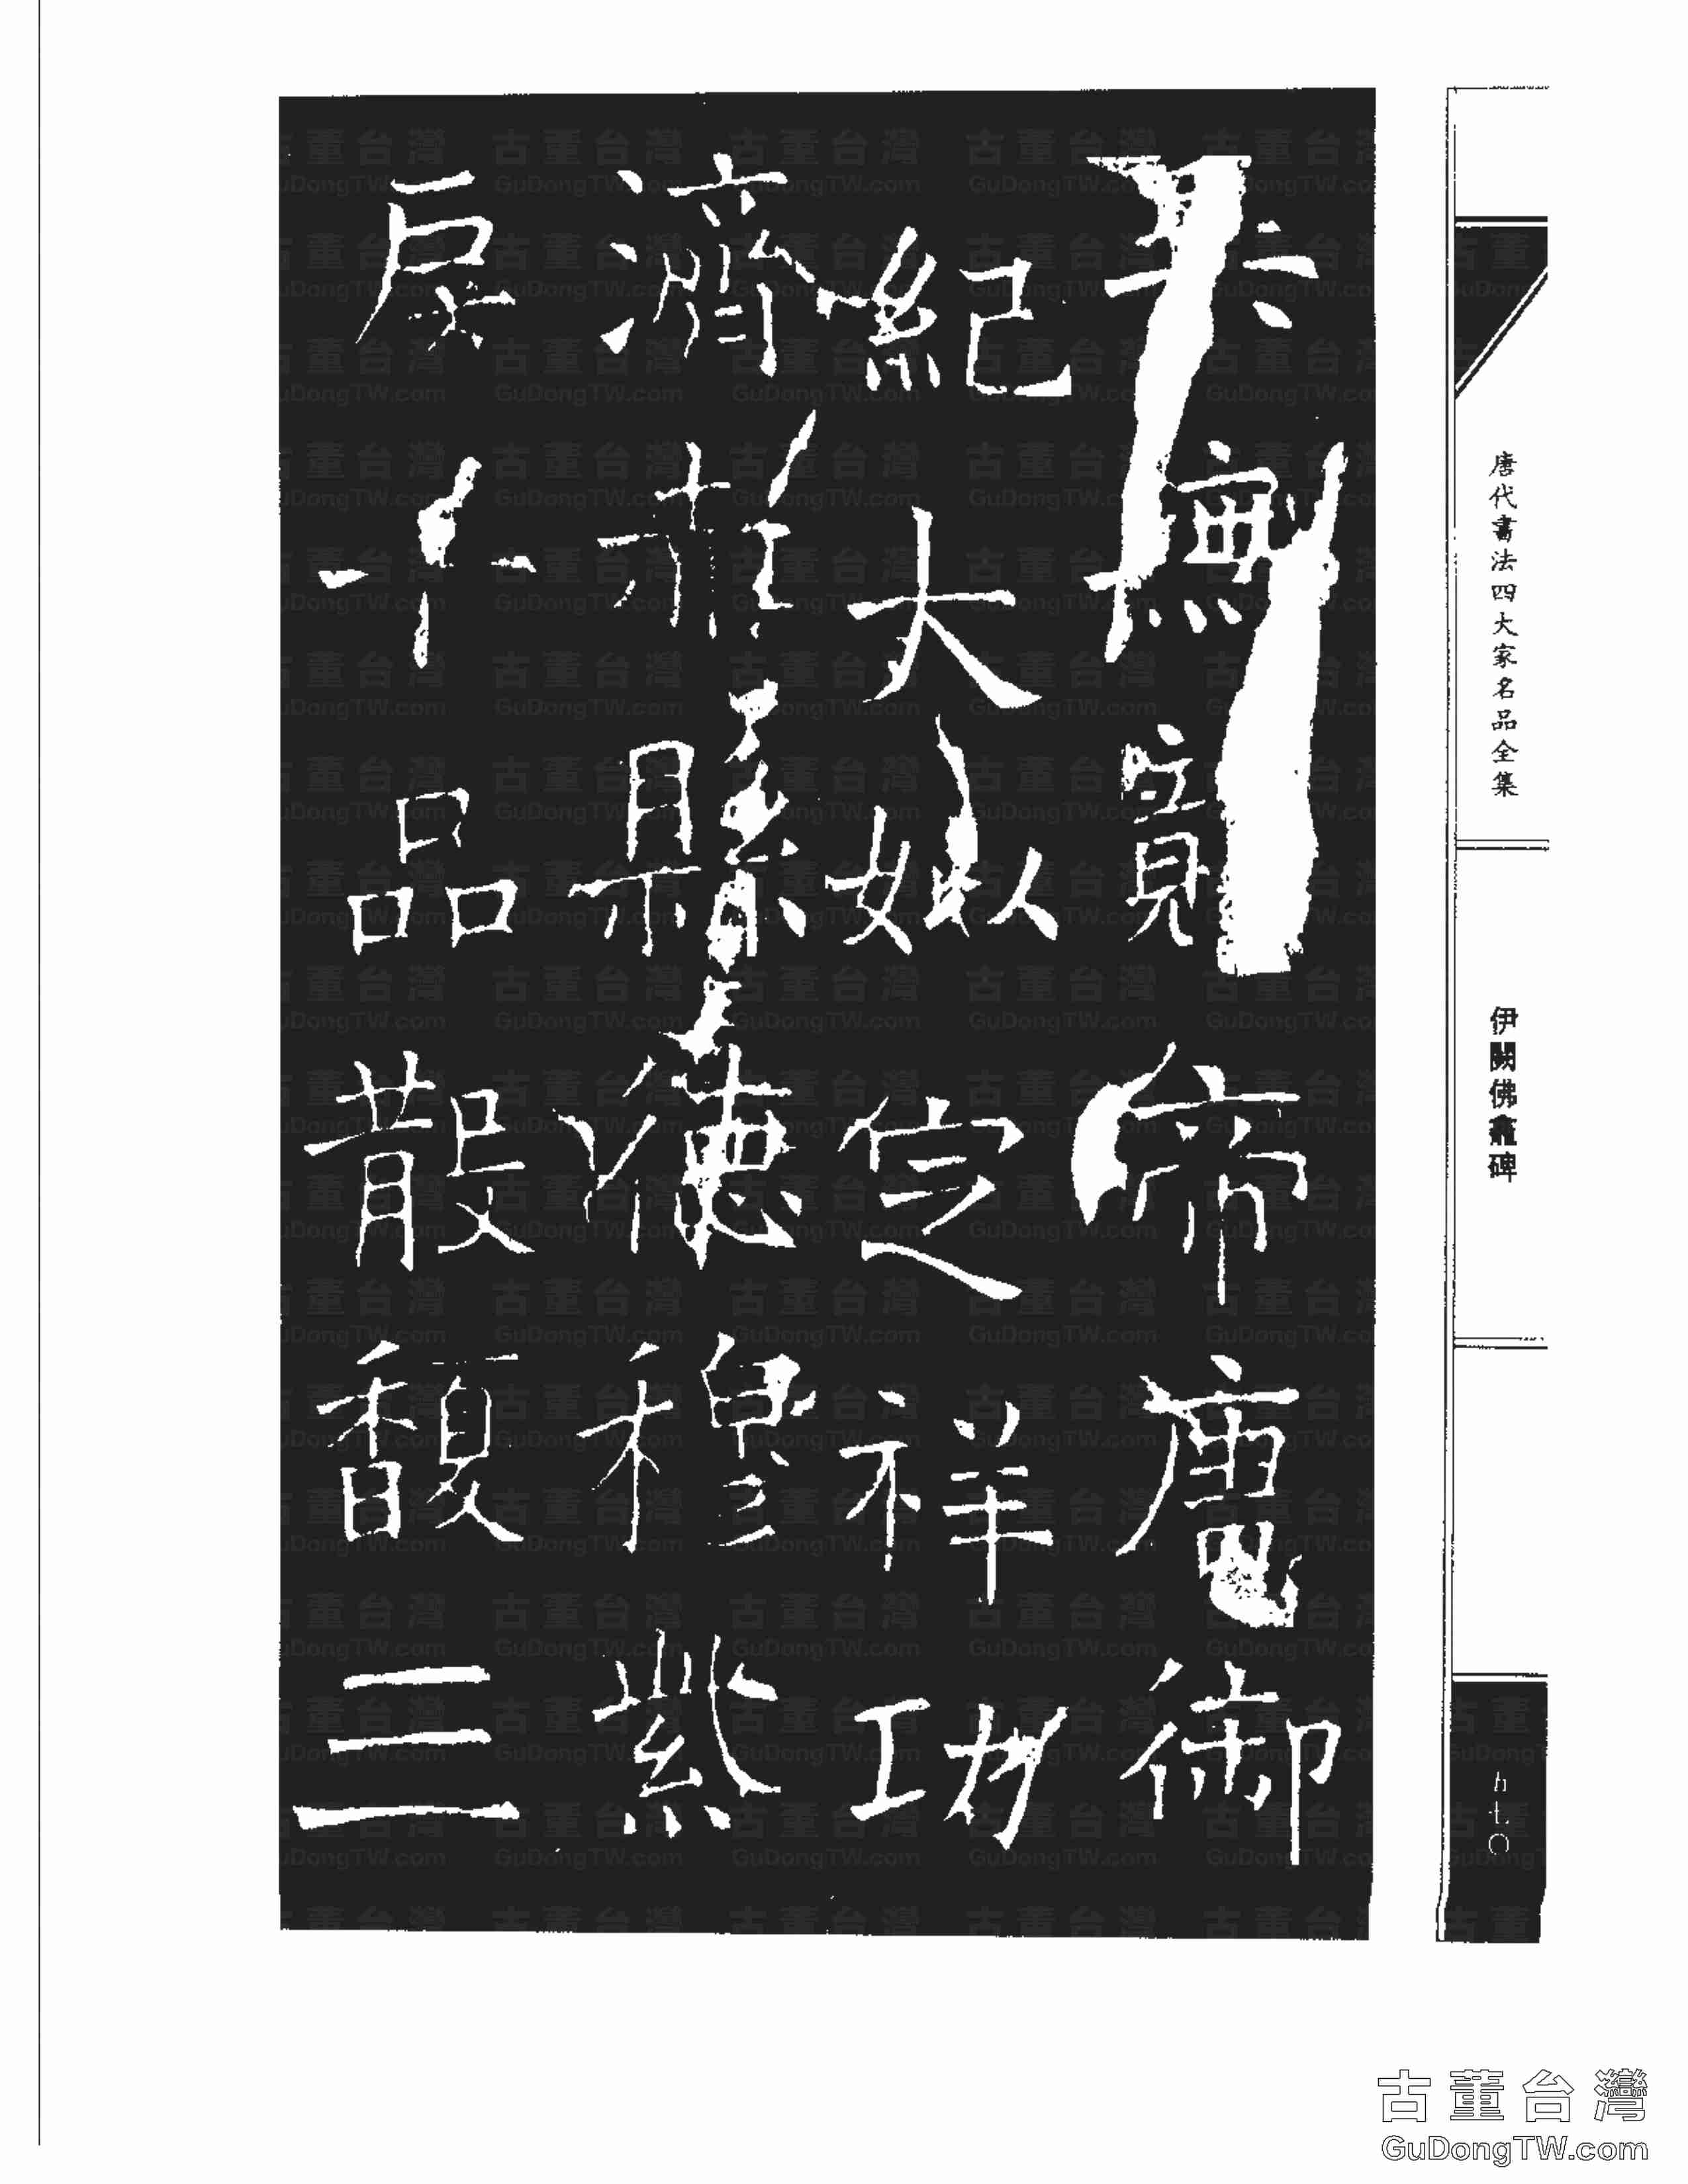 唐代書法四大家名品全集
伊闕佛龕碑
五七〇
無寬帝唐御
紀大姒定祥功
濟於縣德穆紫
房十品散馥三
古董台灣
GuDongTW.com